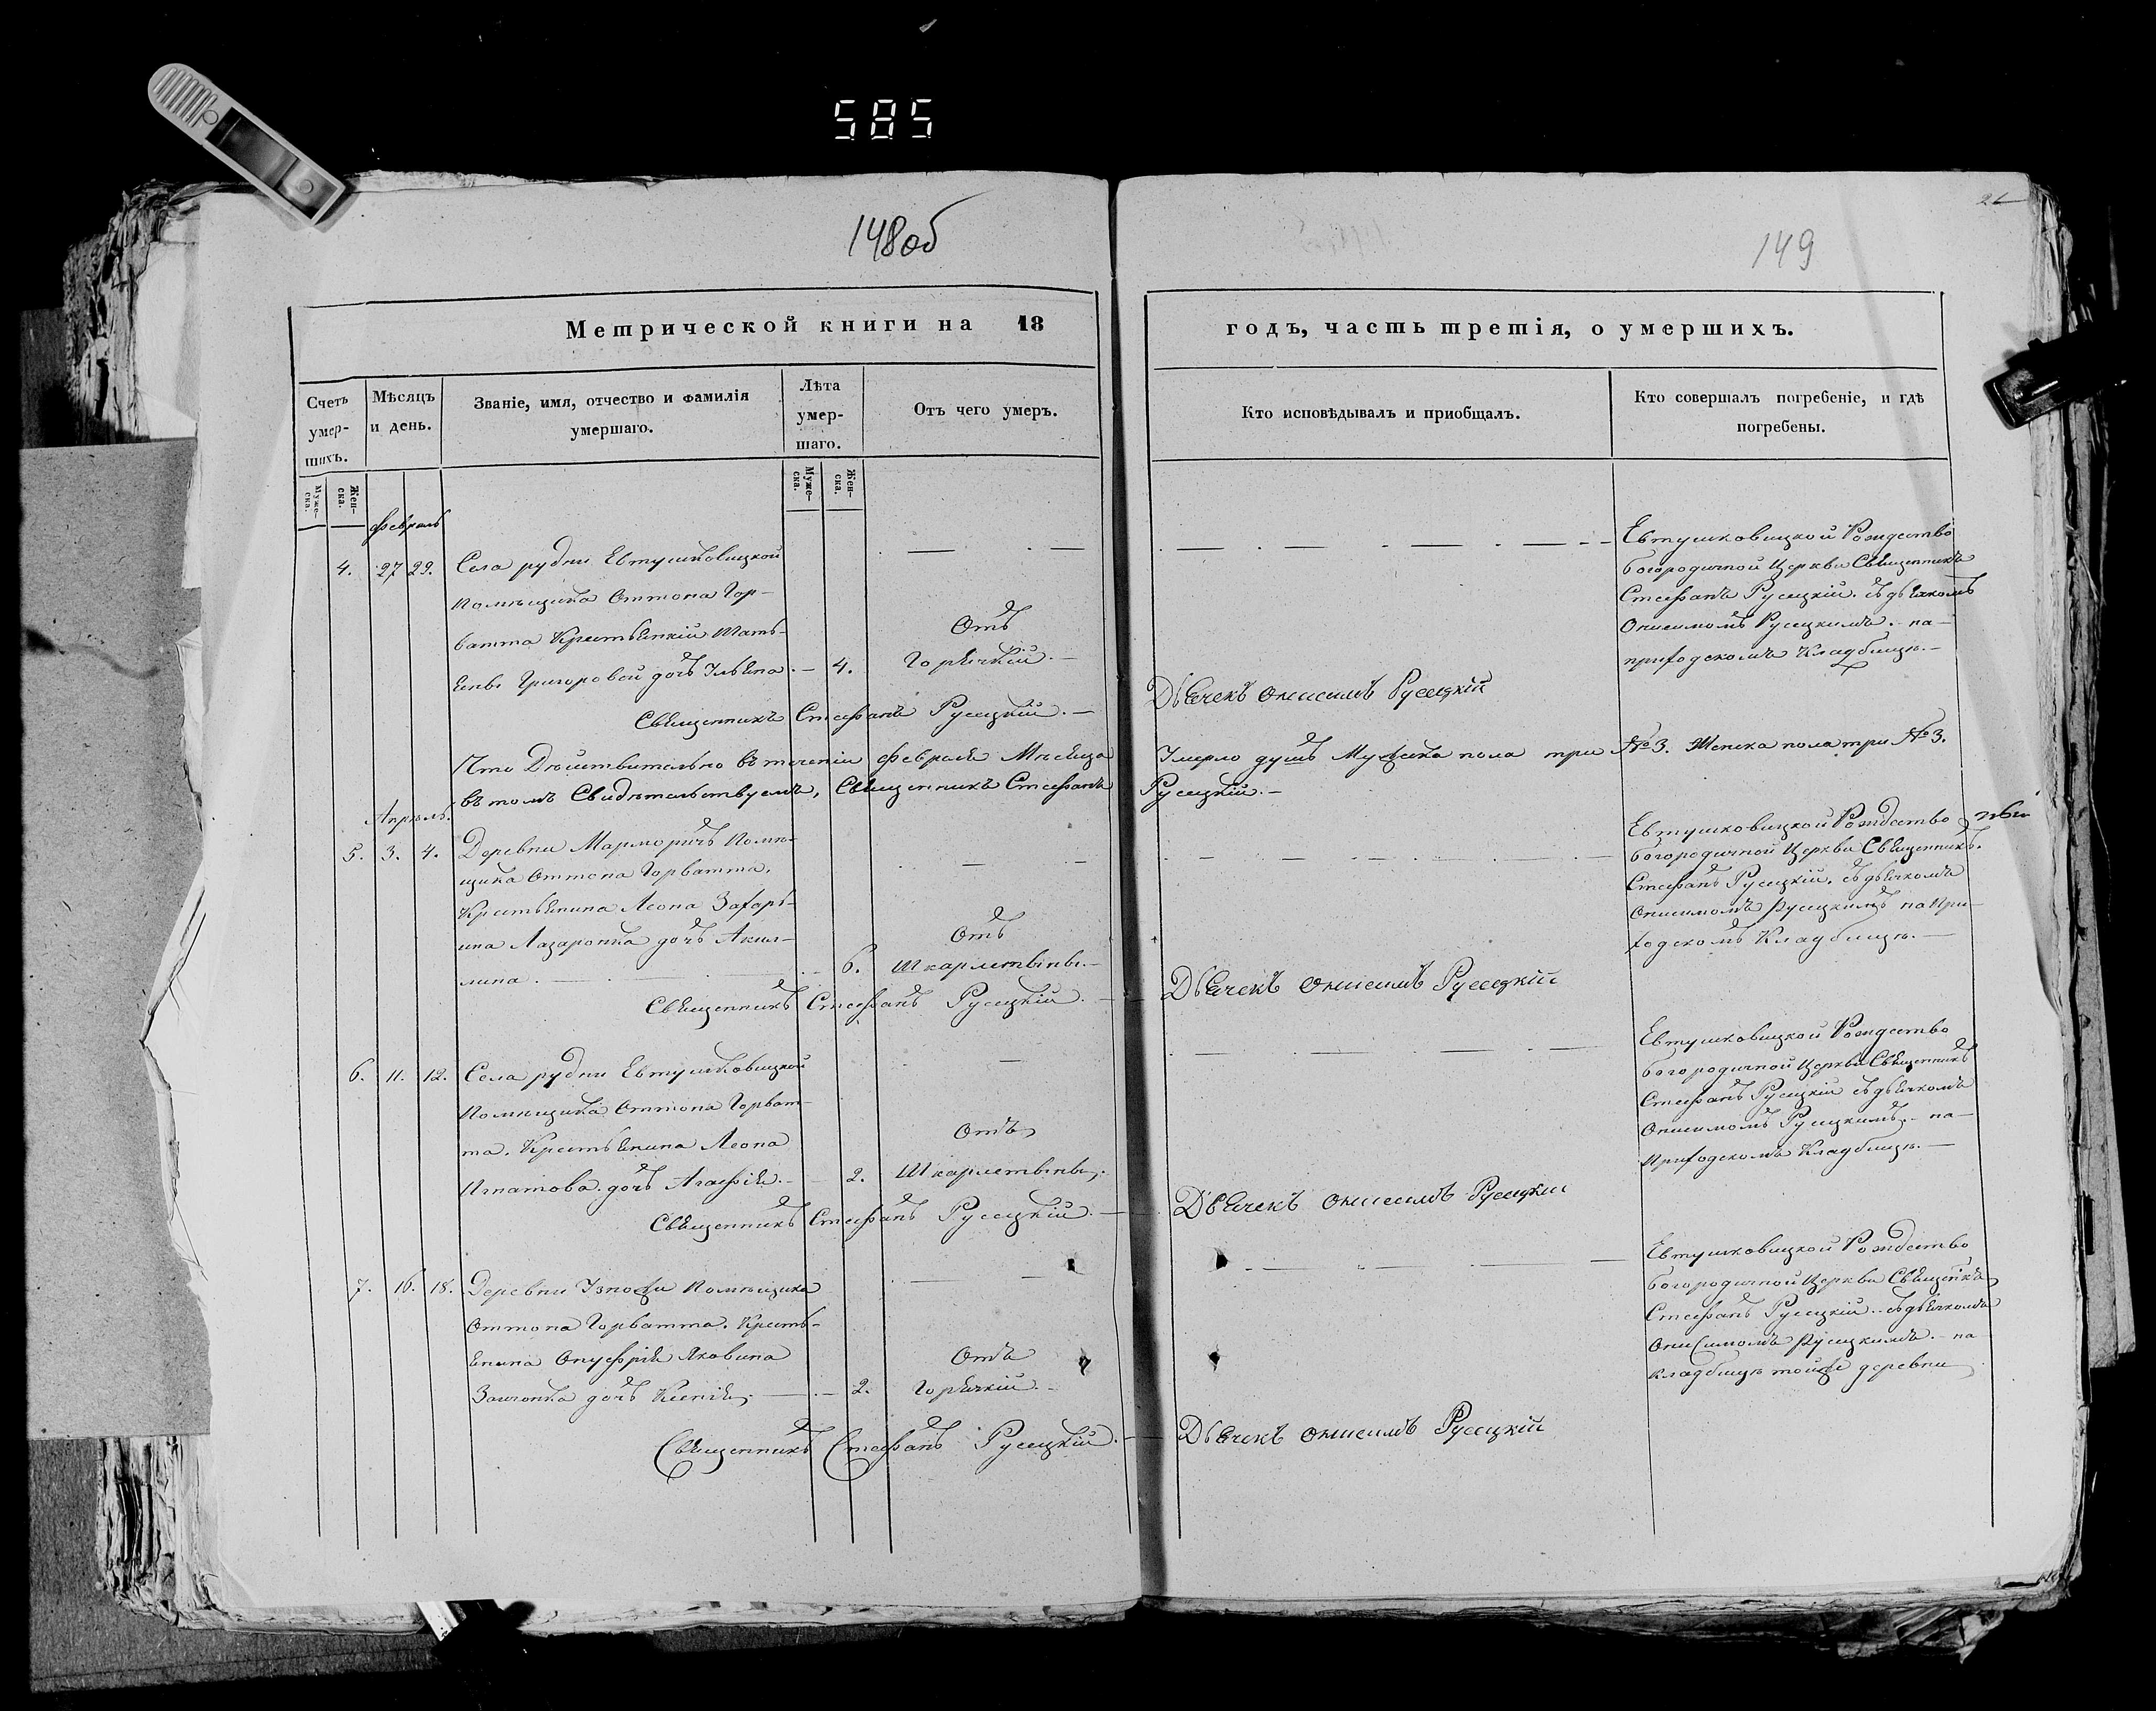 585
148об
Метрической книги на 18
Счетъ умер-шихъ.
Мѣсяцъ и день.
Званіе, имя, отчество и фамилія умершаго.
Лѣта умер-шаго.
Отъ чего умеръ.
Муже-ска.
Жен-ска.
Муже-ска.
Жен-ска.
февраль
4. 27 29. Села рудни Евтушковицкой
помѣщика Оттона Гор-
ватта Крестьянкій
Григоровой дочь 4.
Отъ
Горячкій.
Священникъ Стефанъ Русецкій.
Что Дѣйствительно въ теченіи февраля Мѣсяца
въ томъ Свидѣтельствуемъ, Священникъ Стефанъ
Апрель.
5. 3. 4. Деревни помѣ-
щика Оттона Горватта,
Крестьянина Леона Захарь-
ина Лазаронка дочь Акил-
лина. 6.
Отъ
Шкарлетыны.
Священникъ Стефанъ Русецкій.
6. 11. 12. Села рудни Евтушковицкой
Помѣщика Оттона Горват-
та. Крестьянина Леона
Игнатова дочь Агафія. 2.
Отъ
Шкарлетыны.
Священникъ Стефанъ Русецкій.
7. 16. 18. Деревни Помѣщика
Оттона Горватта. Кресть-
янина Онуфрія Яковина
дочь Ксенія. 2.
Отъ
Горячкій.
Священникъ Стефанъ Русецкій.
149
годъ, часть третія, о умершихъ.
Кто исповѣдывалъ и приобщалъ.
Кто совершалъ погребеніе, и гдѣ погребены.
Евтушковицкой Рождество
богородичной Церкви Священникъ
Стефанъ Русецкій. съ дьячкомъ
Онисимомъ Русецкимъ. на
приходскомъ Кладбищѣ.
Дьячекъ Онисимъ Русецкій
Умерло душъ Мужеска пола три №3. Женска пола три №3.
Русецкій.
Евтушковицкой Рождество
богородичной Церкви Священникъ.
Стефанъ Русецкій. съ дьячкомъ
Онисимомъ Русецкимъ на При-
ходскомъ Кладбищѣ.
Дьячекъ Онисимъ Русецкій
Евтушковицкой Рождество
богородичной Церкви Священникъ
Стефанъ Русецкій съ дьячкомъ
Онисимомъ Русецкимъ. на
Приходскомъ Кладбищѣ.
Дьячекъ Онисимъ Русецкій
Евтушковицкой Рождество
богородичной Церкви
Стефанъ Русецкій. съ дьячкомъ
Онисимомъ Русецкимъ. на
Кладбищѣ тойже деревни
Дьячекъ Онисимъ Русецкій